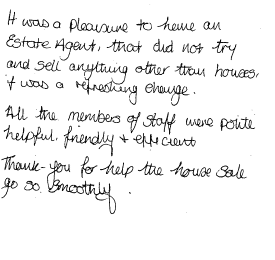 It was a pleasure to have an
Estate Agent, that did not try
and sell anything other than houses,
it was a refreshing change.
All the members of staff were polite
helpful, friendly + efficient
Thank-you for help the house sale
go so smoothly.